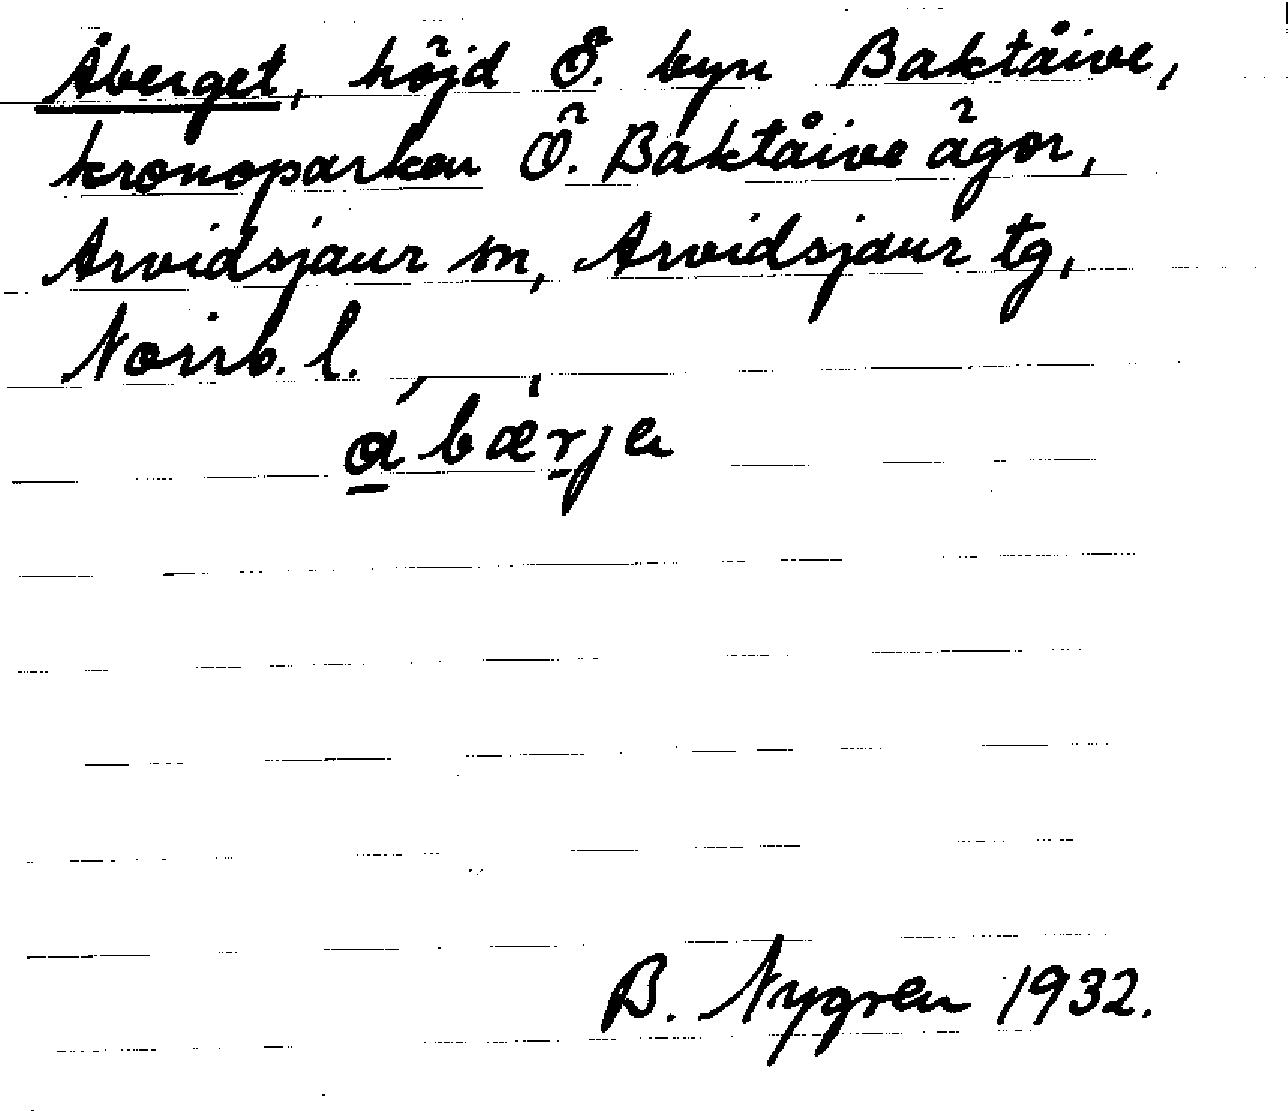 Åberget, höjd Ö. byn Baktåive,
kronoparken Ö. Baktåive ägor,
Arvidsjaur sn, Arvidsjaur tg,
Norrb. l.
a̲´bær̲je
B. Nygren 1932.